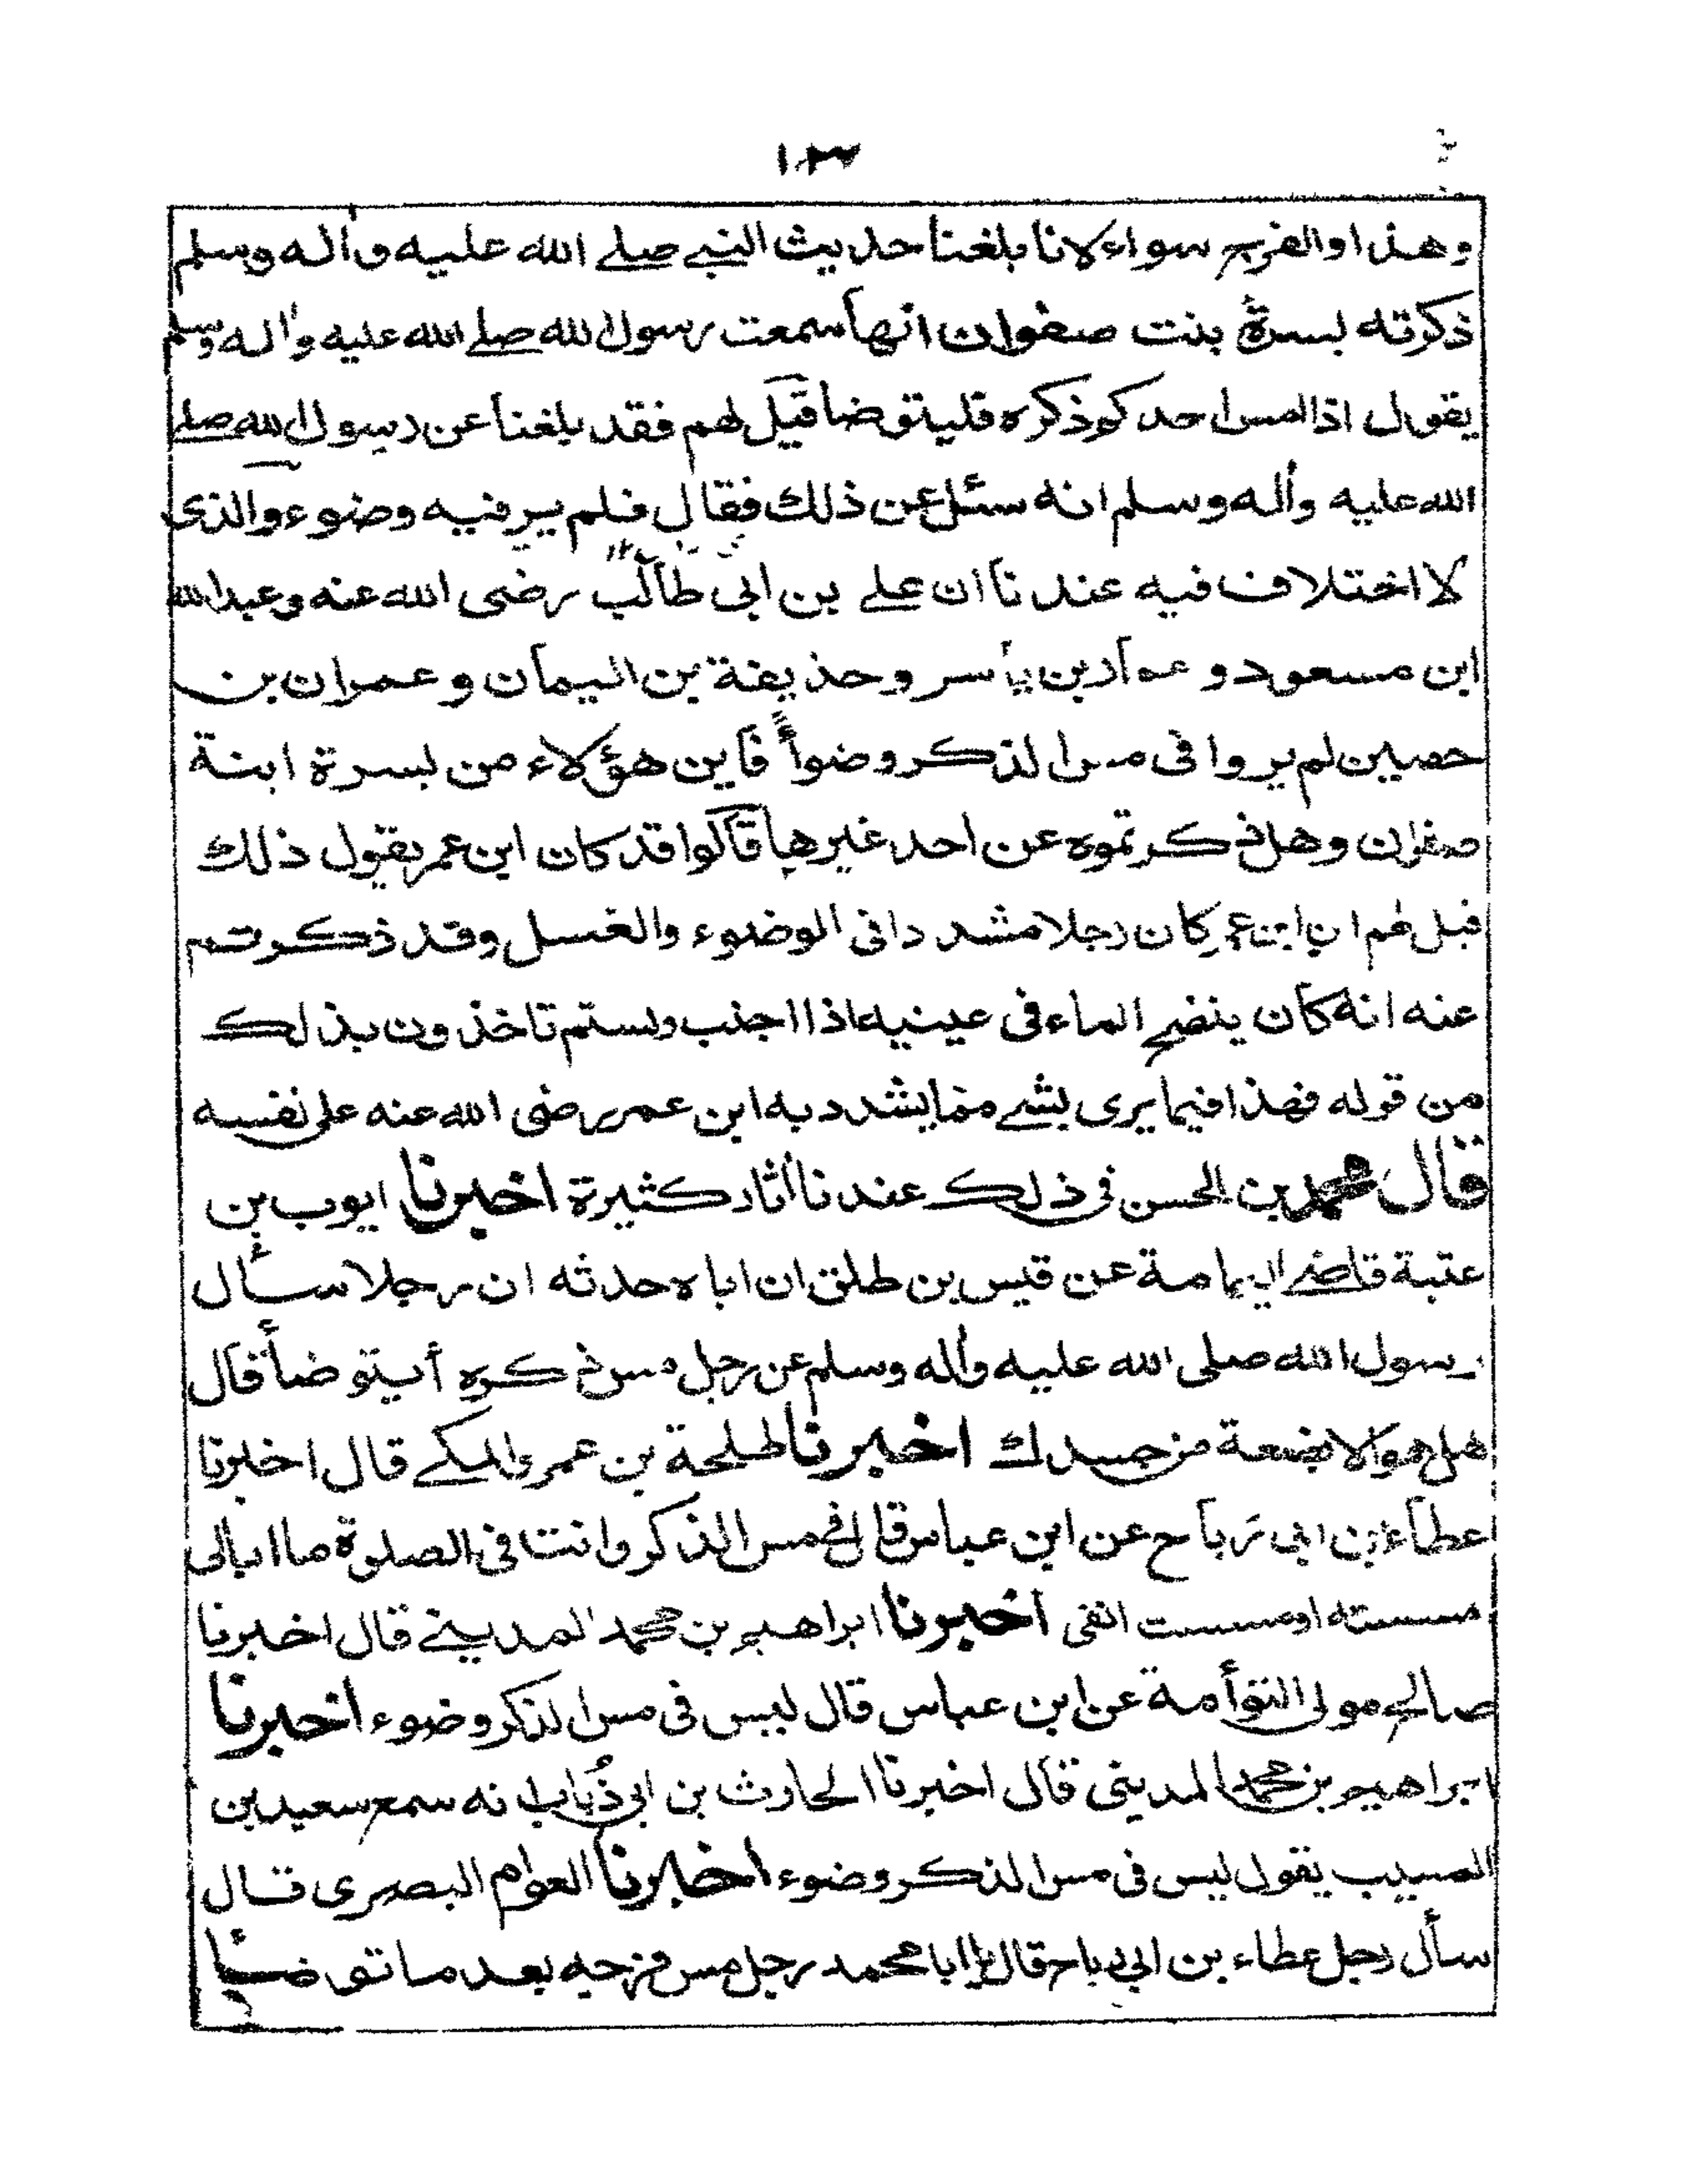 وهذا والفرج سواء لانا بلغنا حديث النبى صلى الله عليه واله وسلم
ذكرته بسرة بنت صفوان انها سمعت رسول الله صلى الله عليه واله وسلم
يقول اذا مس احدكم ذكره فليتوضا قيل لهم فقد بلغنا عن رسول الله صلى
الله عليه واله وسلم انه سئل عن ذلك فقال فلم ير فيه وضوء والذى
لا اختلاف فيه عندنا ان على بن ابى طالب رضى الله عنه وعبد الله
ابن مسعود و عمار بن ياسر و حذيفة بن اليمان و عمران بن
حصين لم يروا فى مس الذكر وضوأ فاين هؤلاء من بسرة ابنة
صفوان وهل ذكرتموه عن احد غيرها قالوا قد كان ابن عمر يقول ذلك
قيل لهم ان ابن عمر كان رجلا مشددا فى الوضوء والغسل وقد ذكرتم
عنه انه كان ينضح الماء فى عينيه اذا اجنب ولستم تاخذون بذلك
من قوله فهذا فيما يرى بشئ مما يشدد به ابن عمر رضى الله عنه على نفسه
قال محمد بن الحسن فى ذلك عندنا أثار كثيرة اخبرنا ايوب بن
عتبة قاضى اليمامة عن قيس بن طلق ان اباه حدثه ان رجلا سأل
رسول الله صلى الله عليه واله وسلم عن رجل مس ذكره أيتوضأ قال
هل هو الا بضعة من جسدك اخبرنا طلحة بن عمرو المكى قال اخبرنا
عطاء بن ابى رباح عن ابن عباس قال فى مس الذكر وانت فى الصلوة ما ابالى
مسسته او مسست انفى اخبرنا ابراهيم بن محمد المدينى قال اخبرنا
صالح مولى التوأمة عن ابن عباس قال ليس فى مس الذكر وضوء اخبرنا
ابراهيم بن محمد المدينى قال اخبرنا الحارث بن ابى ذباب انه سمع سعيد بن
المسيب يقول ليس فى مس الذكر وضوء اخبرنا العوام البصرى قال
سأل رجل عطاء بن ابى رباح قال يا ابا محمد رجل مس فرجه بعد ما توضأ